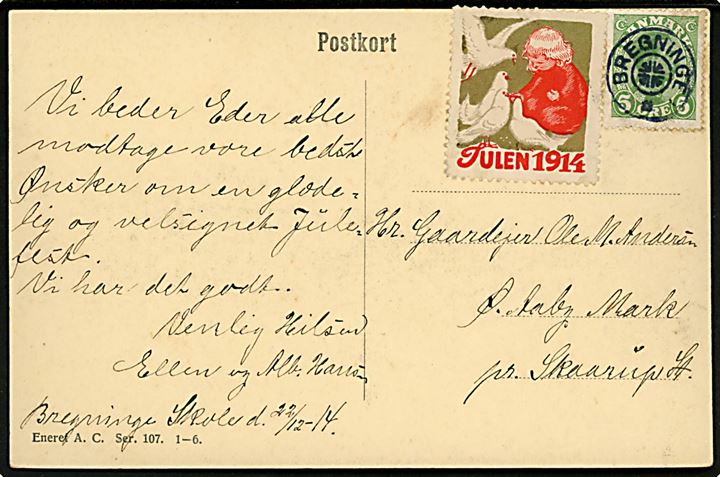 Postkort
Vi beder Eder alle
modtage vore bedste
Ønsker om en glæde-
lig og velsignet Jule-
fest.
Vi har det godt.
Venlig Hilsen
Ellen og Alb. Hansen
Bregninge Skole d. 22/12-14.
Eneret A. C. Ser. 107. 1-6.
JULEN 1914
DANMARK
5 ØRE 5
BREGNINGE
Hr. Gaardejer Ole M. Andersen
Ø. Aaby Mark
pr. Skaarup St.